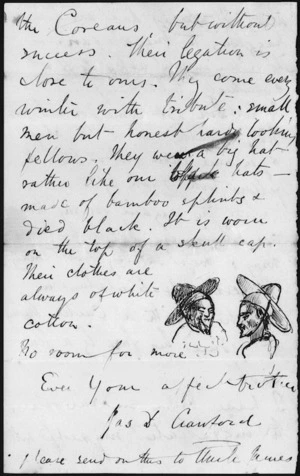 the Coreans, but without
success. Their legation is
close to ours. They come every
winter with tribute. small
men but honest hardy looking
fellows. They wear a big hat
rather like our hats —
made of bamboo splints &
died black. It is worn
on the top of a skull cap.
Their clothes are
always of white
cotton.
No room for more
Ever Your affect brother
Jas D Crawford
please send on this to Uncle James